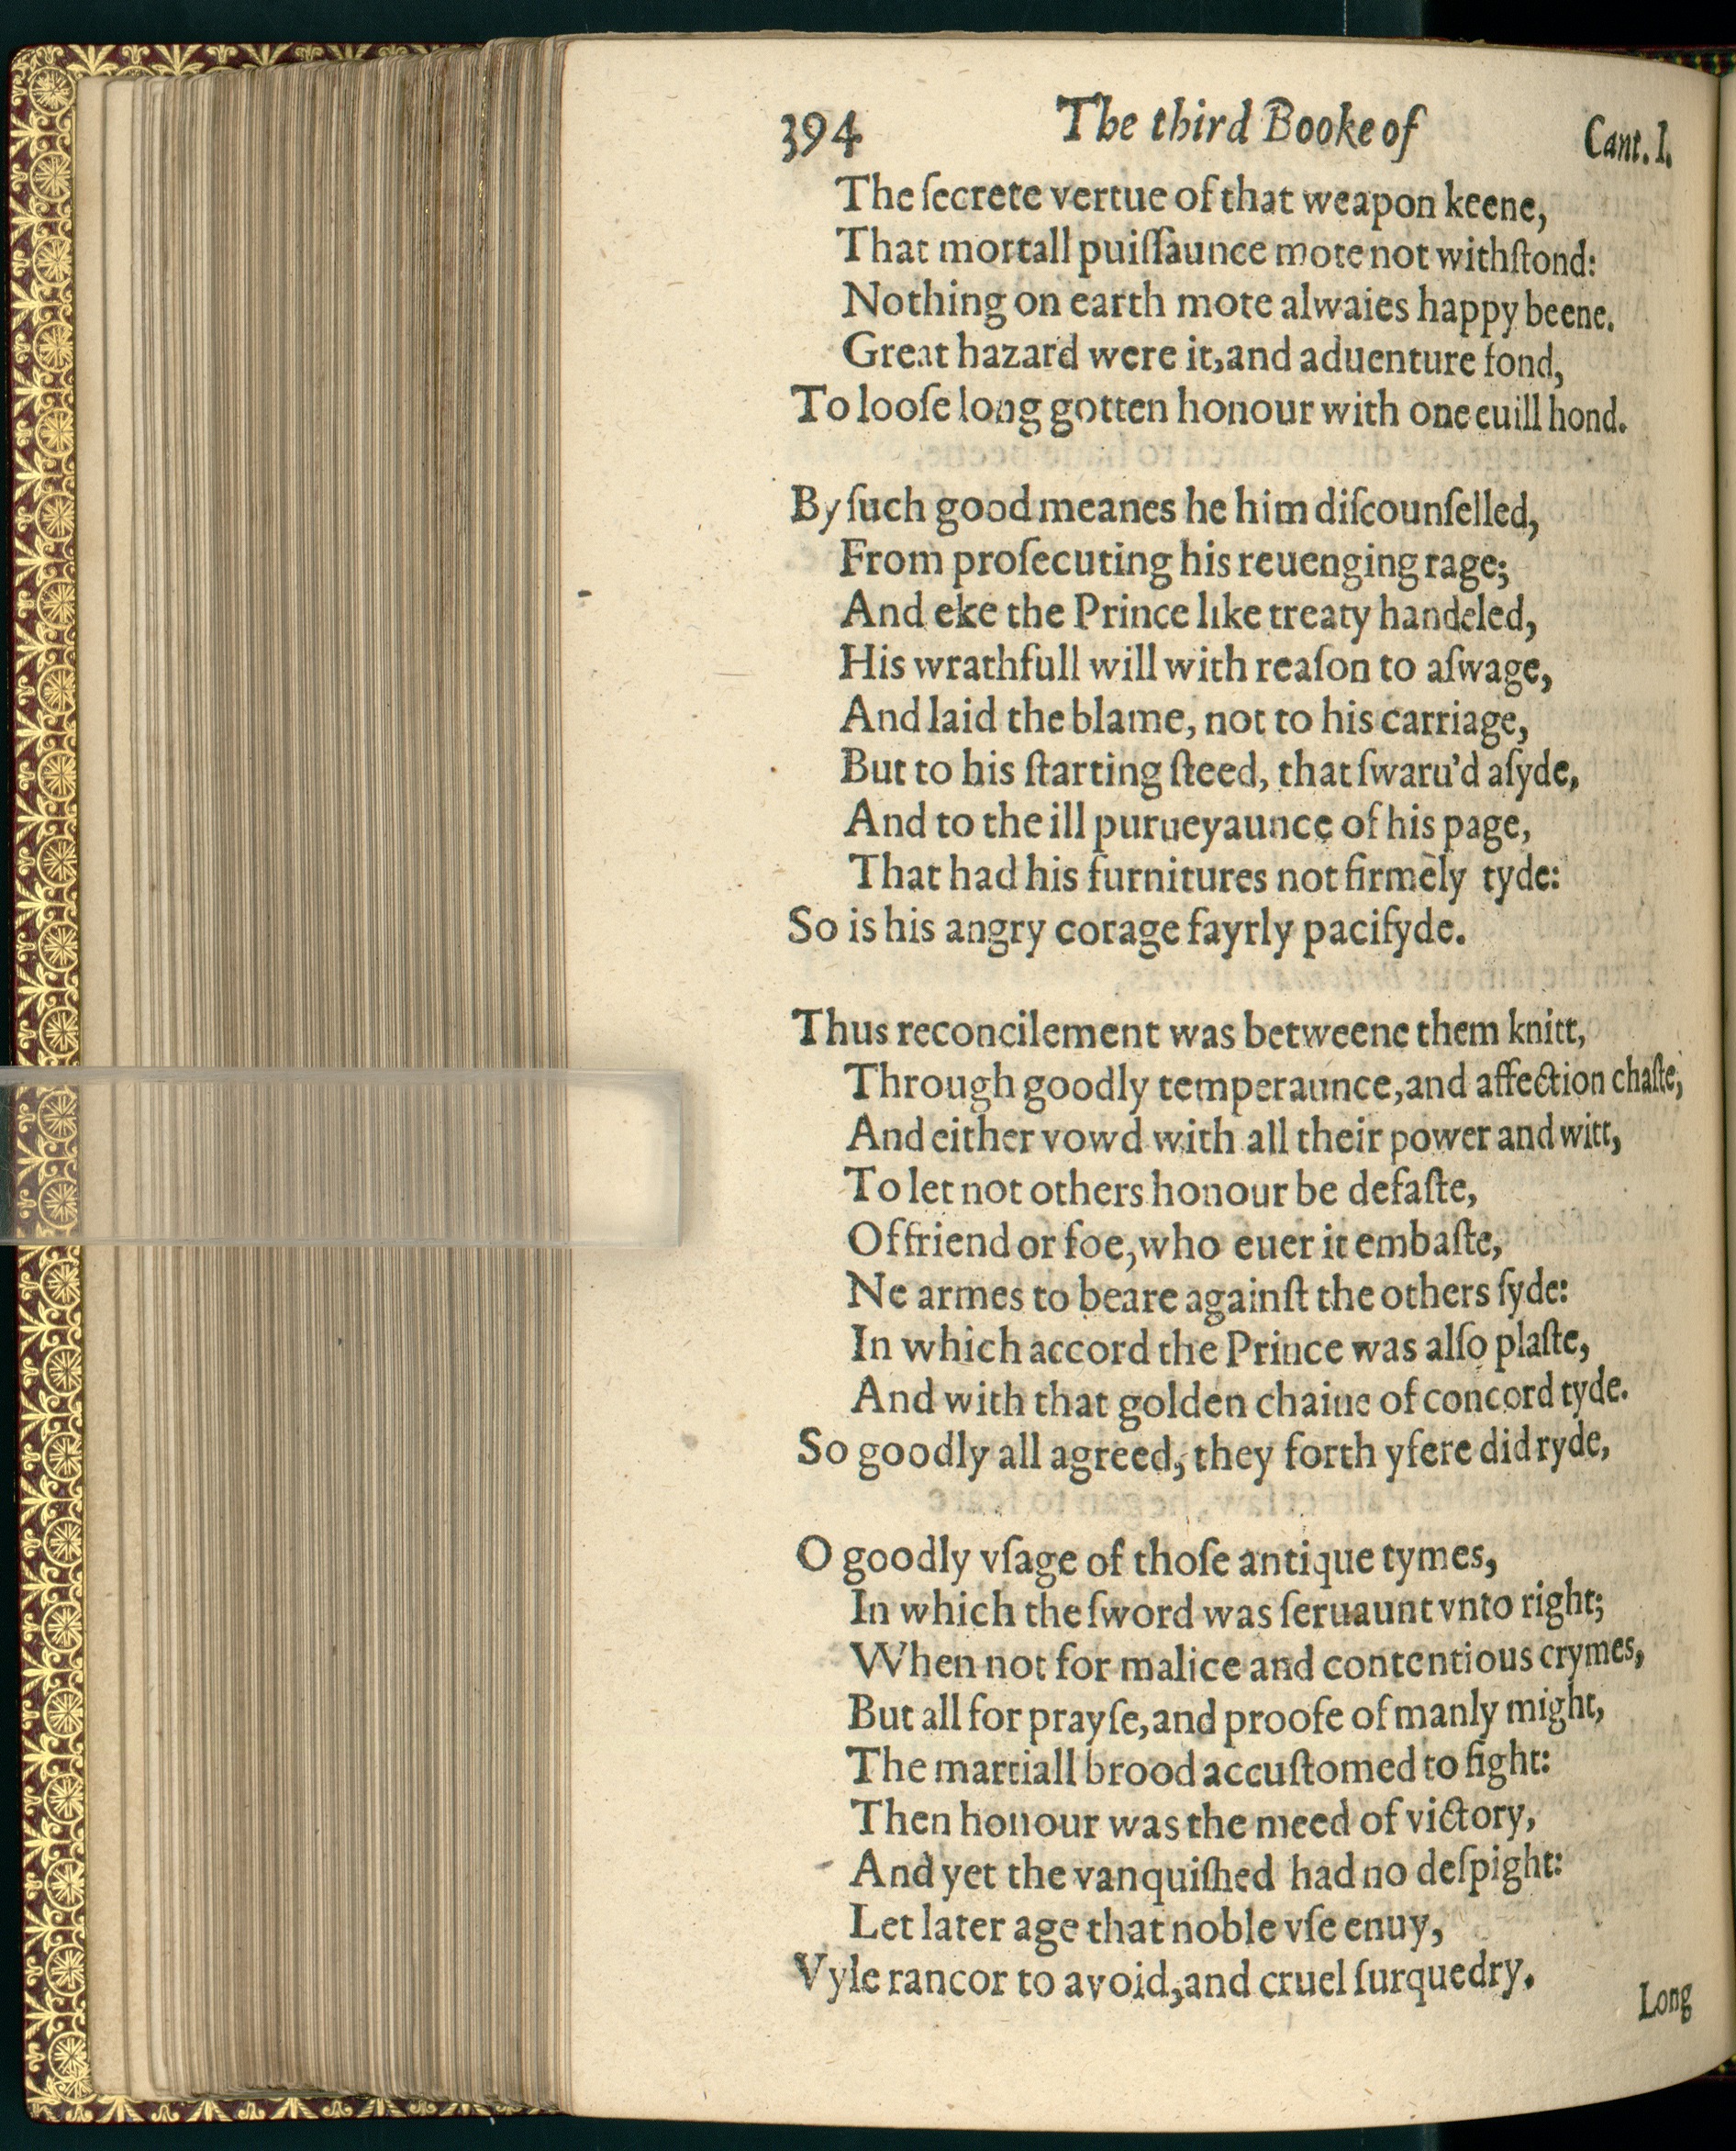 394 The third Booke of Cant. I.
The ſecrete vertue of that weapon keene,
That mortall puiſſaunce mote not withſtond:
Nothing on earth mote alwaies happy beene.
Great hazard were it, and aduenture fond,
To looſe long gotten honour with one euill hond.
By ſuch good meanes he him diſcounſelled,
From proſecuting his reuenging rage;
And eke the Prince like treaty handeled,
His wrathfull will with reaſon to aſwage,
And laid the blame, not to his carriage,
But to his ſtarting ſteed, that ſwaru'd aſyde,
And to the ill purueyaunce of his page,
That had his furnitures not firmely tyde:
So is his angry corage fayrly pacifyde.
Thus reconcilement was betweene them knitt,
Through goodly temperaunce, and affection chaſte,
And either vowd with all their power and witt,
To let not others honour be defaſte,
Of friend or foe, who euer it embaſte,
Ne armes to beare againſt the others ſyde:
In which accord the Prince was alſo plaſte,
And with that golden chaine of concord tyde.
So goodly all agreed, they forth yfere did ryde,
O goodly vſage of thoſe antique tymes,
In which the ſword was ſeruaunt vnto right;
When not for malice and contentious crymes,
But all for prayſe, and proofe of manly might,
The martiall brood accuſtomed to fight:
Then honour was the meed of victory,
And yet the vanquiſhed had no deſpight:
Let later age that noble vſe enuy,
Vyle rancor to avoid, and cruel ſurquedry.
Long